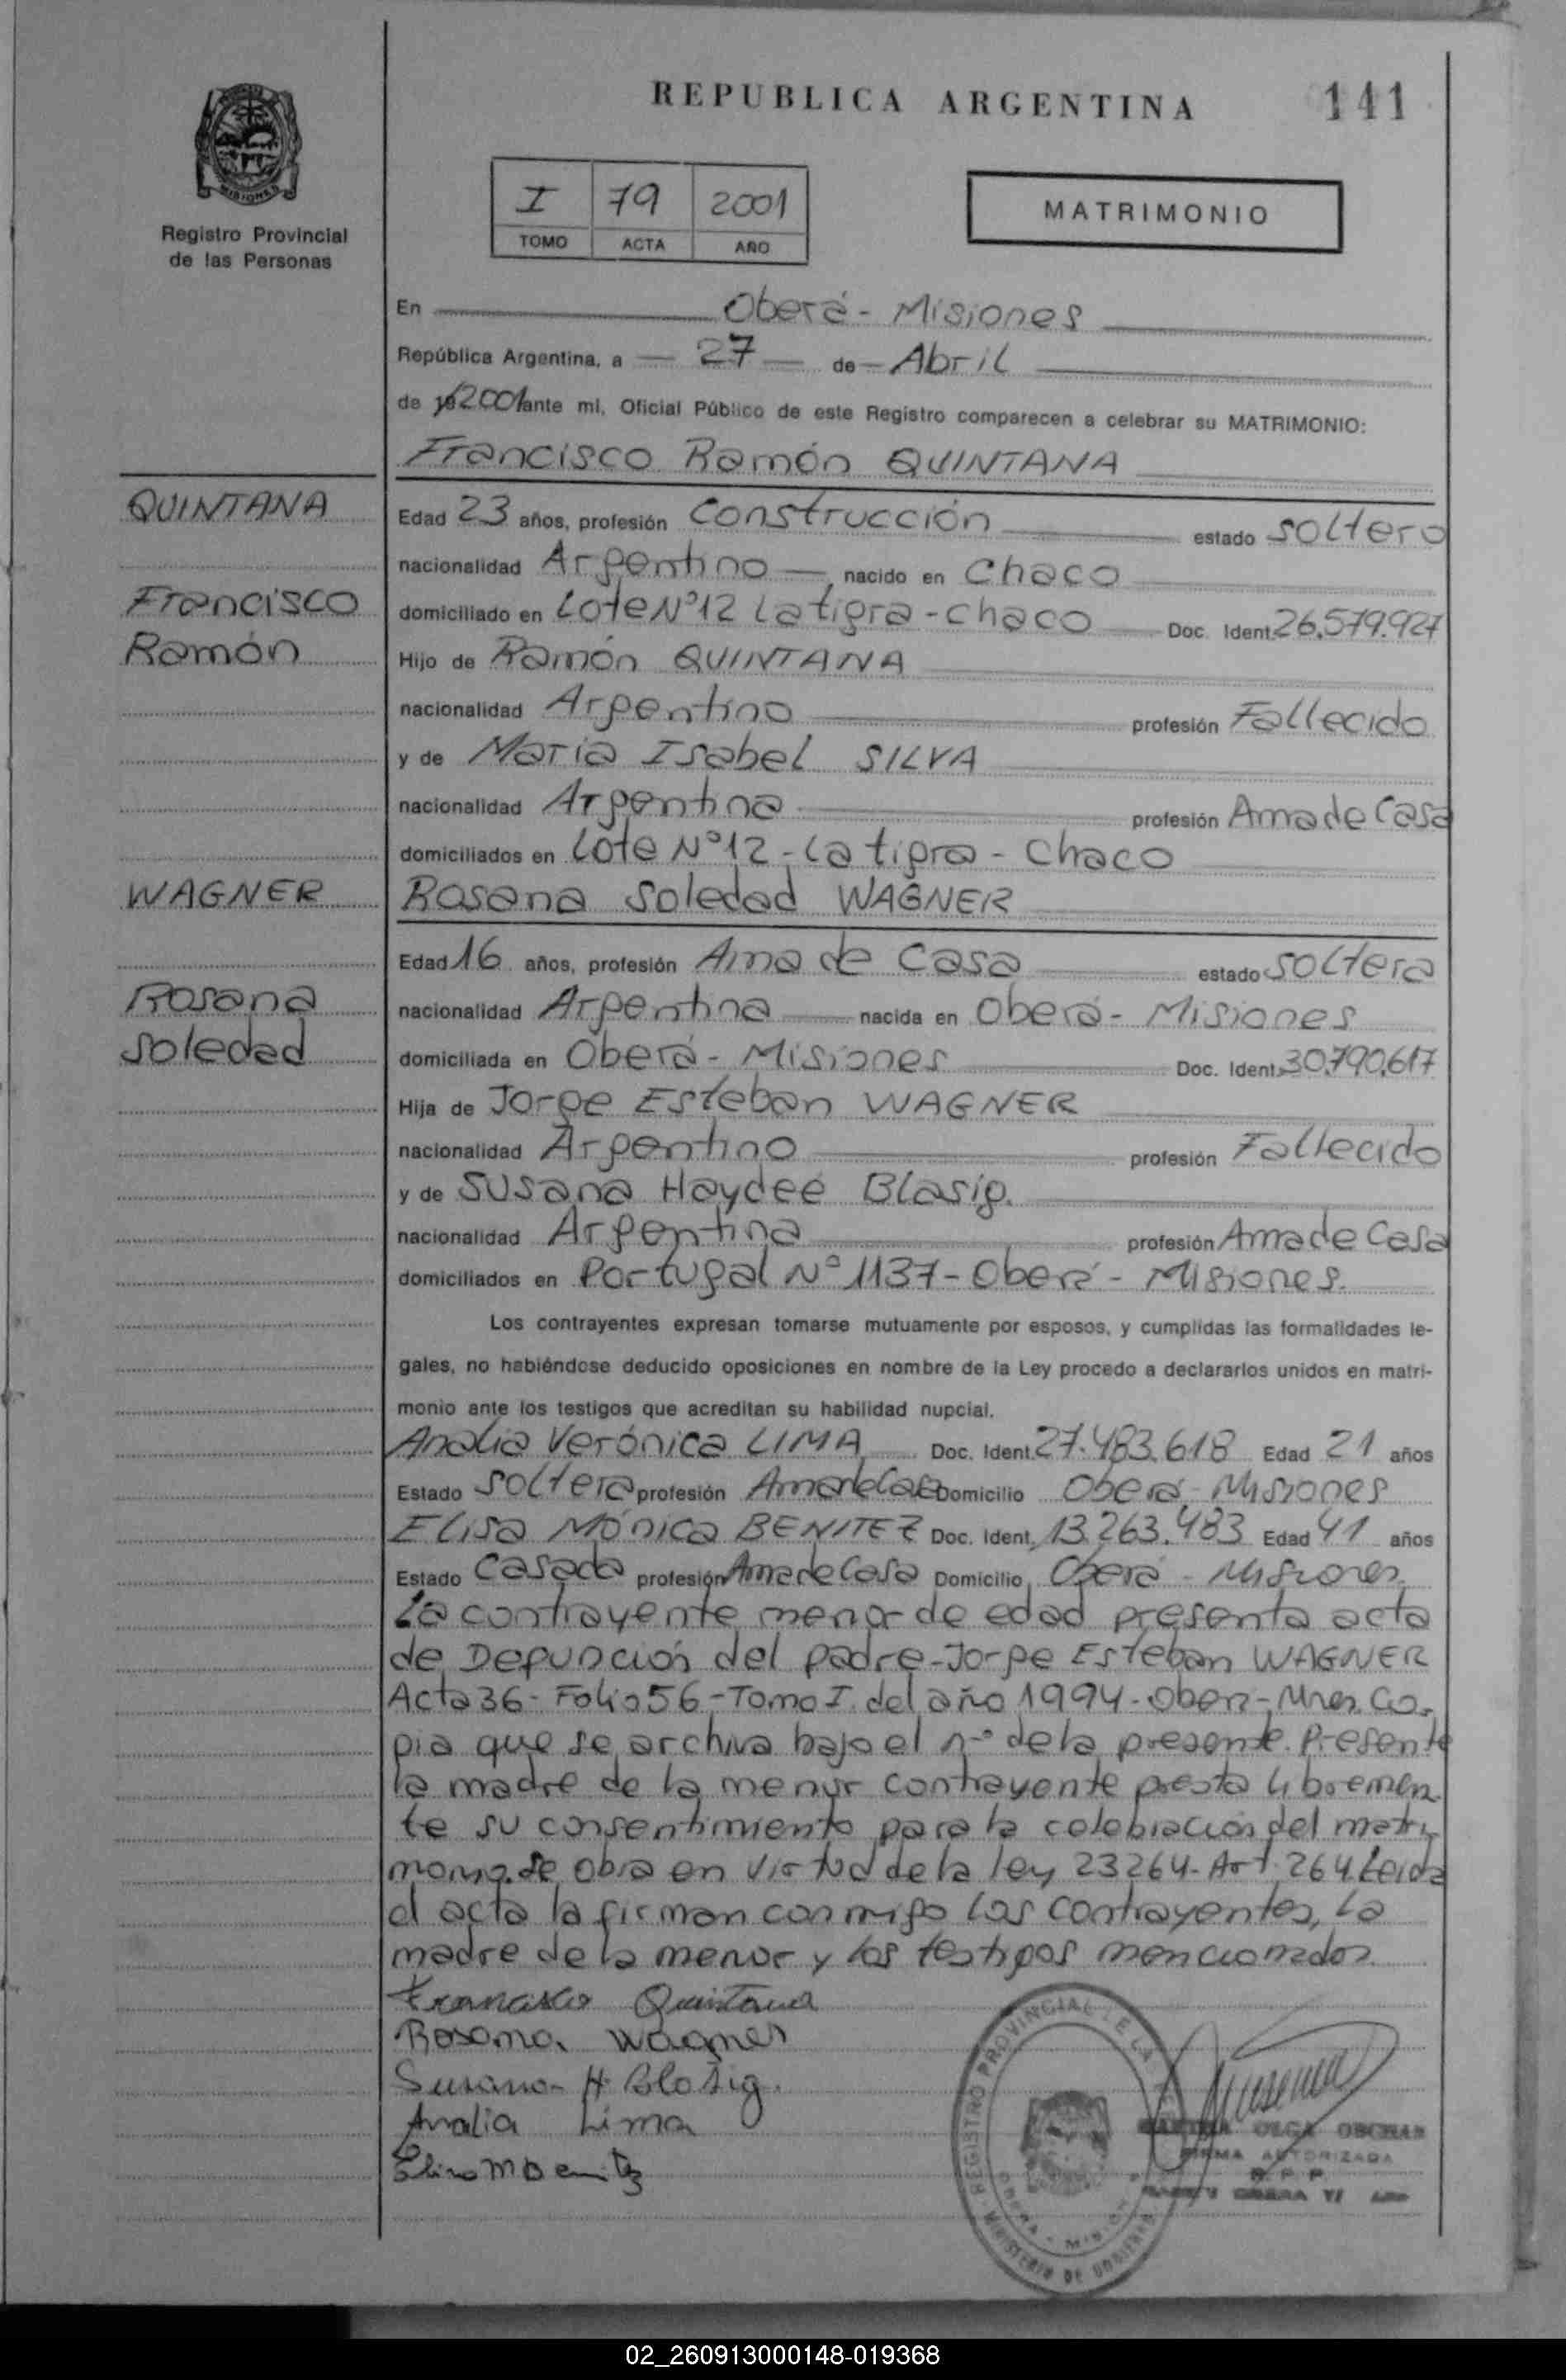 REPUBLICA ARGENTINA
141
MISIONES
Registro Provincial
de las Personas
I 79 2001
TOMO ACTA AÑO
MATRIMONIO
En Oberá - Misiones
República Argentina, a 27 de Abril
de 19 2001 ante mí, Oficial Público de este Registro comparecen a celebrar su MATRIMONIO:
Francisco Ramón QUINTANA
QUINTANA
Francisco
Ramón
Edad 23 años, profesión Construcción estado soltero
nacionalidad Argentino nacido en Chaco
domiciliado en Lote Nº 12 La tigra - Chaco Doc. Ident. 26.579.927
Hijo de Ramón QUINTANA
nacionalidad Argentino profesión Fallecido
y de María Isabel SILVA
nacionalidad Argentina profesión Ama de Casa
domiciliados en Lote Nº 12 - La tigra - Chaco
WAGNER
Rosana
Soledad
Rosana Soledad WAGNER
Edad 16 años, profesión Ama de Casa estado soltera
nacionalidad Argentina nacida en Oberá - Misiones
domiciliada en Oberá - Misiones Doc. Ident. 30.790.617
Hija de Jorge Esteban WAGNER
nacionalidad Argentino profesión Fallecido
y de Susana Haydeé Blasig.
nacionalidad Argentina profesión Ama de Casa
domiciliados en Portugal Nº 1137 - Oberá - Misiones.
Los contrayentes expresan tomarse mutuamente por esposos, y cumplidas las formalidades le-
gales, no habiéndose deducido oposiciones en nombre de la Ley procedo a declararlos unidos en matri-
monio ante los testigos que acreditan su habilidad nupcial.
Analia Verónica LIMA Doc. Ident. 27.483.618 Edad 21 años
Estado soltera profesión Ama de Casa Domicilio Oberá - Misiones
Elisa Mónica BENITEZ Doc. Ident. 13.263.483 Edad 41 años
Estado Casada profesión Ama de Casa Domicilio Oberá - Misiones
La contrayente menor de edad presenta acta
de Defunción del padre - Jorge Esteban WAGNER
Acta 36 - Folio 56 - Tomo I. del año 1994 - Oberá - Mnes. Co-
pia que se archiva bajo el nº de la presente. Presente
la madre de la menor contrayente presta libremen
te su consentimiento para la celebración del matri
monio. Se obra en virtud de la ley 23264 - Art. 264. Leída
el acta la firman conmigo los contrayentes, la
madre de la menor y los testigos mencionados.
Francisco Quintana
Rosana Wagner
Susana H. Blasig.
Analia Lima
Elisa M Benitez
REGISTRO PROVINCIAL DE LA
MINISTERIO DE GOBIERNO
OLGA
FIRMA AUTORIZADA
R. P. P.
02_260913000148-019368